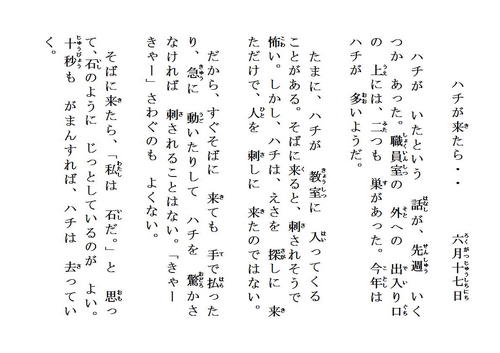 ハチが来たら・・　六月十七日
ハチが　いたという　話が、先週　いく
つか　あった。職員室の　外への　出入り口
の　上には、二つも　巣があった。今年は
ハチが　多いようだ。
たまに、ハチが　教室に　入ってくる
ことがある。そばに来ると、刺されそうで
怖い。しかし、ハチは、えさを　探しに　来
ただけで、人を　刺しに　来たのではない。
だから、すぐそばに　来ても　手で払った
り、急に　動いたりして　ハチを　驚かさ
なければ　刺されることはない。「きゃー
きゃー」さわぐのも　よくない。
そばに来たら、「私は　石だ。」と　思っ
て、石のように　じっとしているのが　よい。
十秒も　がまんすれば、ハチは　去ってい
く。